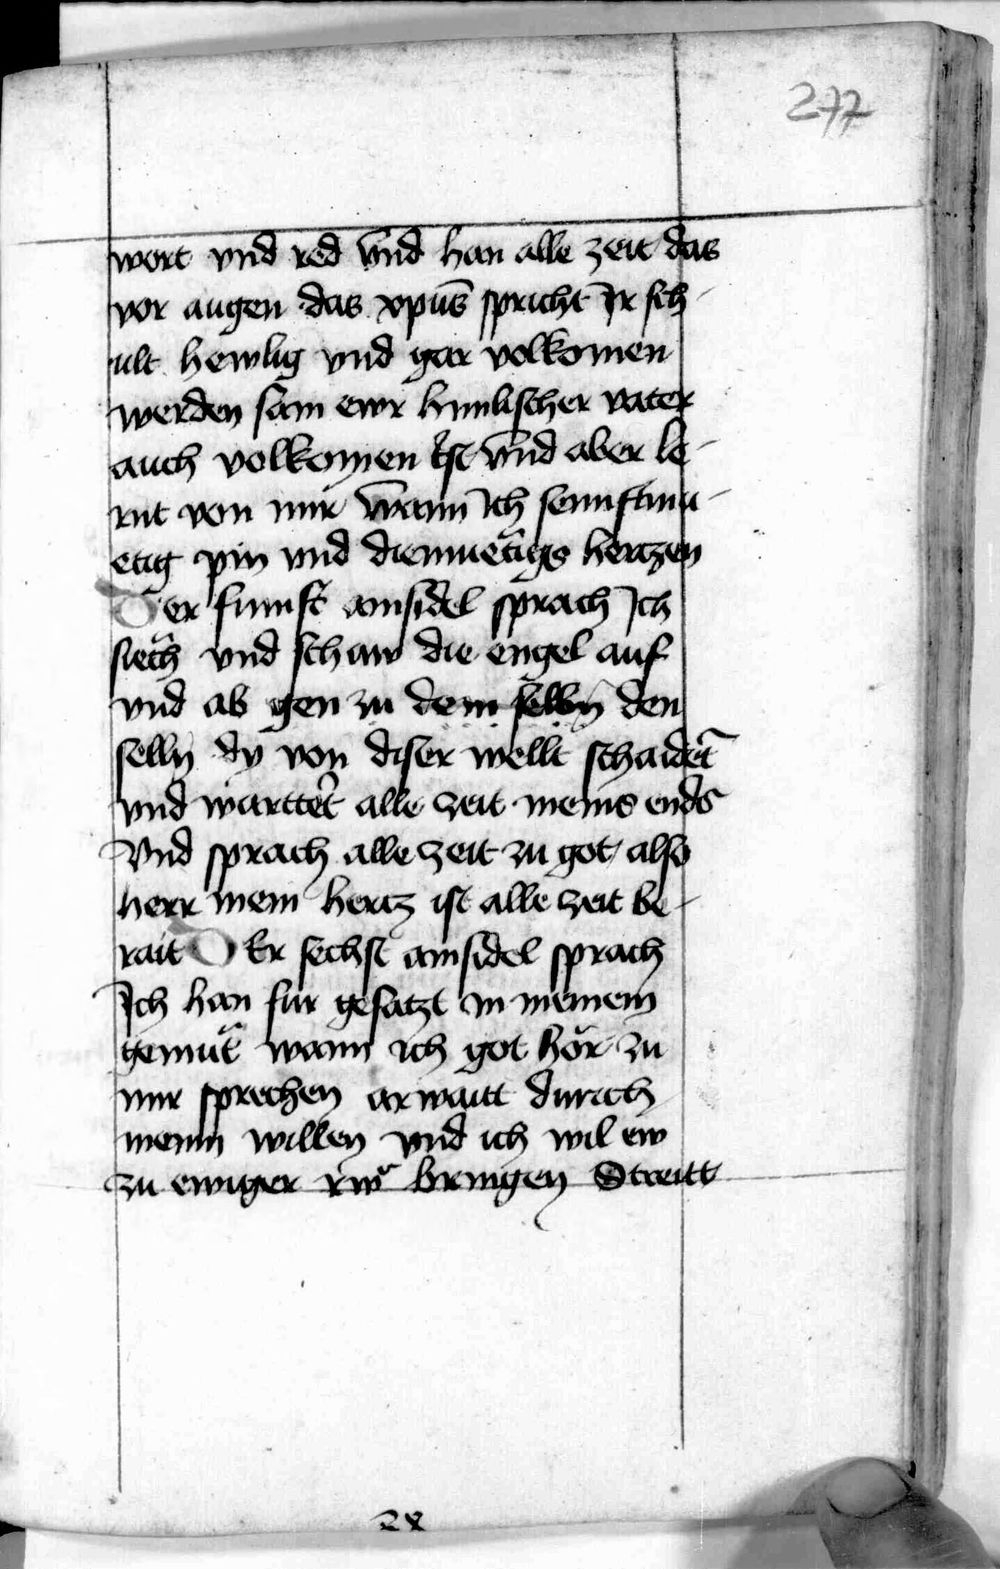 277
wort vnd red vnd han alle zeit das
vor augen das xpūs spricht Ir sch-
ult hewlig vnd gar volkomen
werden sam ewr himlischer vater
auch volkomen ist vnd aber le-
rnt von mir wann ich sennftmu-
etig pin vnd diemuetigs hertzen
Der funft ainsidel sprach Ich
siech vnd schaw die engel auf
vnd ab gen zu dem selbn̄ den
selbn̄ dy von diser wellt schaidet̄
vnd warttet alle zeit meins ends
Vnd sprach alle zeit zu got also
herr mein hertz ist alle zeit be-
rait DEr sechst ainsidel sprach
Ich han fur gesatzt in meinem
gemut wann ich got hör zu
mir sprechen arwaitt durich
meinn willen vnd ich wil ew
zu ewiger rw bringen Streitt
28